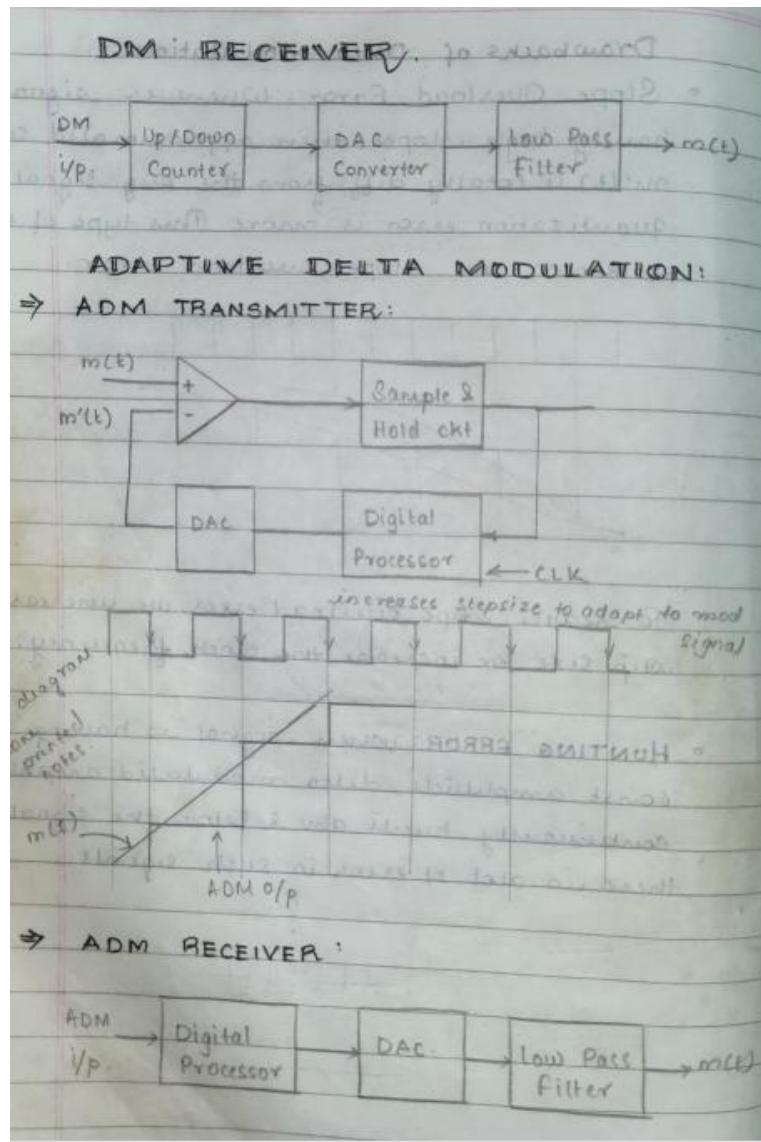 DM RECEIVER.
DM
i/p.
Up/Down
Counter
DAC
Converter
Low Pass
Filter
m(t)
ADAPTIVE DELTA MODULATION:
⇒ ADM TRANSMITTER:
m(t)
+
m'(t)
-
Sample &
Hold ckt
DAC
Digital
Processor
CLK
increases stepsize to adapt to mod
signal
diagram
on
printed
notes.
m(t)
ADM O/p
⇒ ADM RECEIVER:
ADM
i/p.
Digital
Processor
DAC.
Low Pass
Filter
m(t)